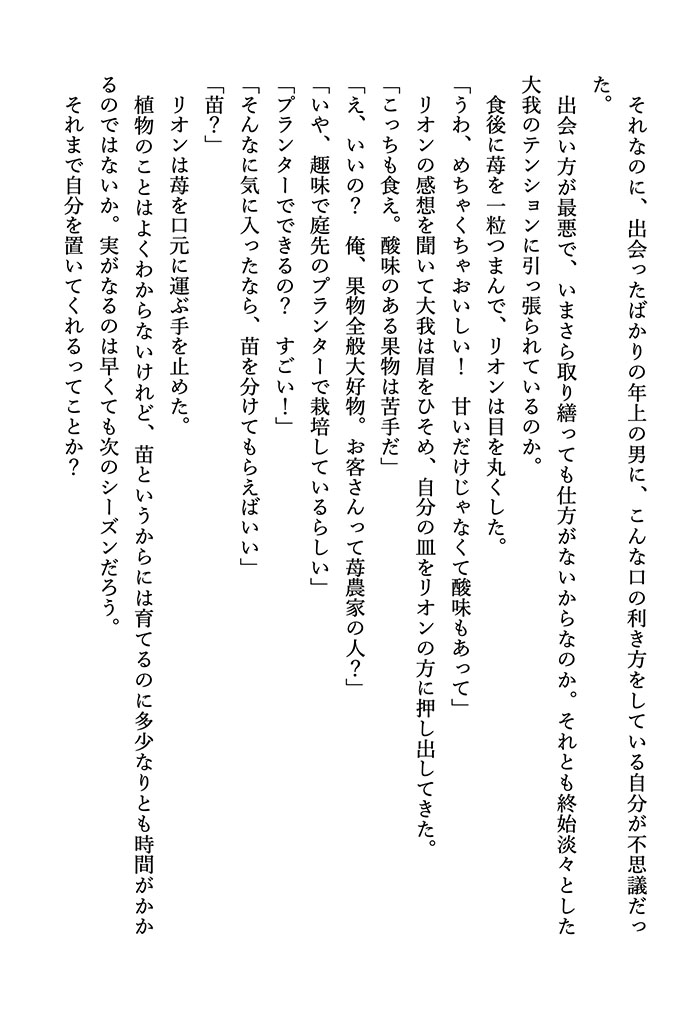 それなのに、出会ったばかりの年上の男に、こんな口の利き方をしている自分が不思議だっ
た。
　出会い方が最悪で、いまさら取り繕っても仕方がないからなのか。それとも終始淡々とした
大我のテンションに引っ張られているのか。
　食後に苺を一粒つまんで、リオンは目を丸くした。
「うわ、めちゃくちゃおいしい！　甘いだけじゃなくて酸味もあって」
　リオンの感想を聞いて大我は眉をひそめ、自分の皿をリオンの方に押し出してきた。
「こっちも食え。酸味のある果物は苦手だ」
「え、いいの？　俺、果物全般大好物。お客さんって苺農家の人？」
「いや、趣味で庭先のプランターで栽培しているらしい」
「プランターでできるの？　すごい！」
「そんなに気に入ったなら、苗を分けてもらえばいい」
「苗？」
　リオンは苺を口元に運ぶ手を止めた。
　植物のことはよくわからないけれど、苗というからには育てるのに多少なりとも時間がかか
るのではないか。実がなるのは早くても次のシーズンだろう。
　それまで自分を置いてくれるってことか？